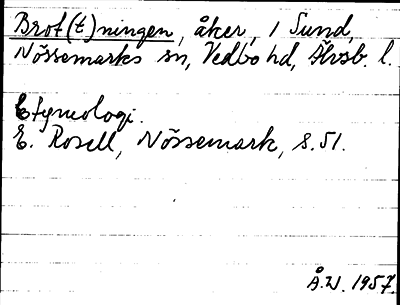 Brot(t)ningen, åker, i Sund,
Nössemarks sn, Vedbo hd, Älvsb. l.
Etymologi.
E. Rosell, Nössemark, s. 51.
Å.W. 1957.